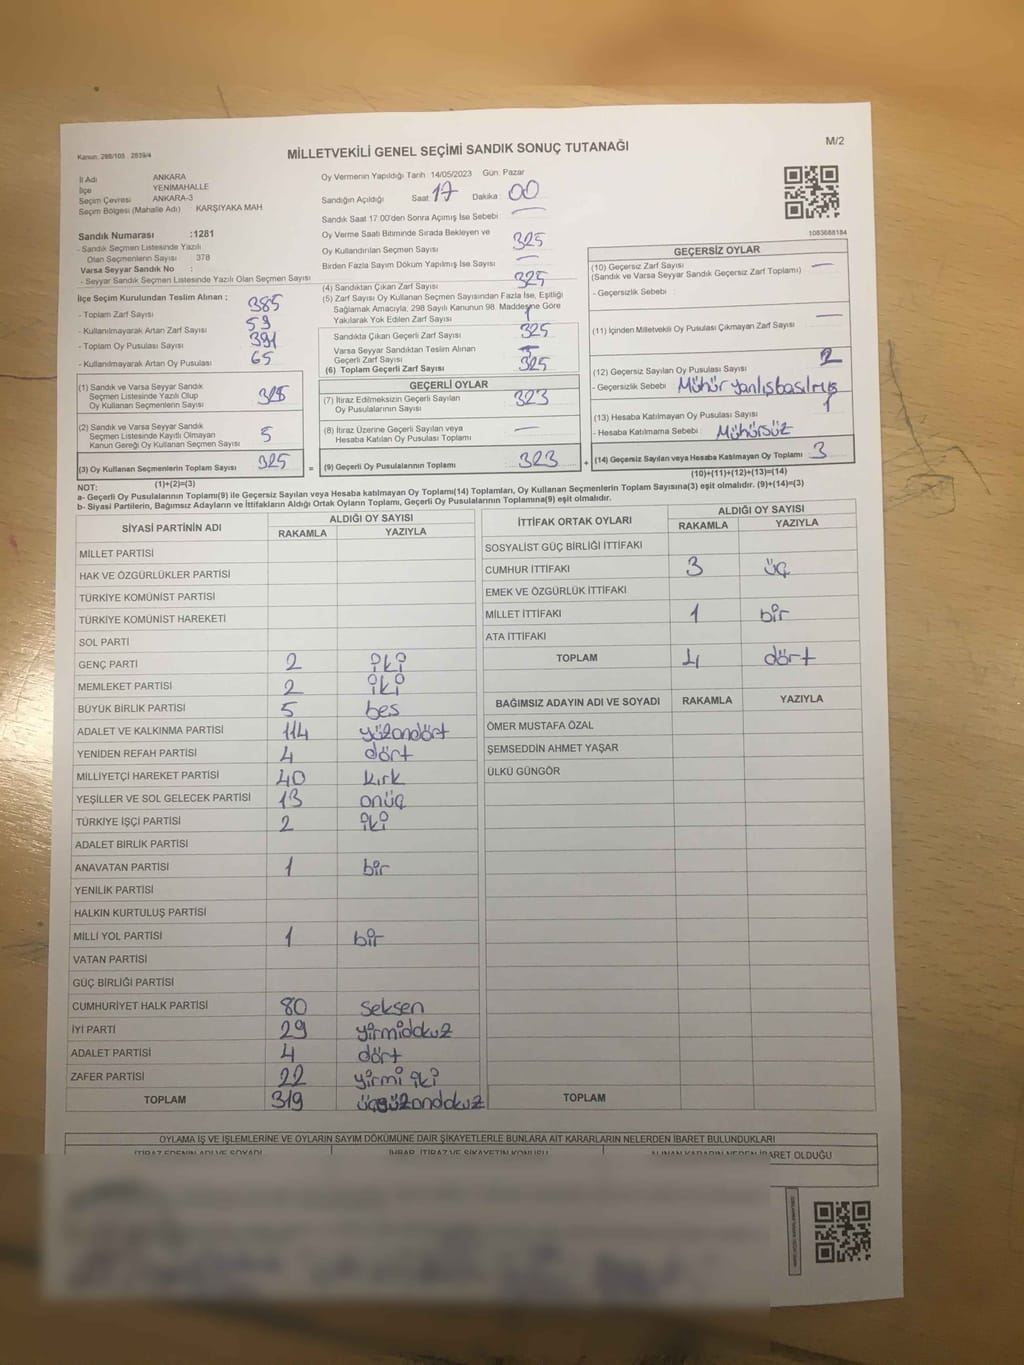 Kanun: 298/105 2839/4
MİLLETVEKİLİ GENEL SEÇİMİ SANDIK SONUÇ TUTANAĞI
M/2
İl Adı ANKARA
İlçe YENİMAHALLE
Seçim Çevresi ANKARA-3
Seçim Bölgesi (Mahalle Adı) KARŞIYAKA MAH
Sandık Numarası :1281
- Sandık Seçmen Listesinde Yazılı
Olan Seçmenlerin Sayısı 378
Varsa Seyyar Sandık No :
- Seyyar Sandık Seçmen Listesinde Yazılı Olan Seçmen Sayısı
İlçe Seçim Kurulundan Teslim Alınan ;
- Toplam Zarf Sayısı 385
- Kullanılmayarak Artan Zarf Sayısı 59
- Toplam Oy Pusulası Sayısı 391
- Kullanılmayarak Artan Oy Pusulası 65
(1) Sandık ve Varsa Seyyar Sandık
Seçmen Listesinde Yazılı Olup
Oy Kullanan Seçmenlerin Sayısı
(2) Sandık ve Varsa Seyyar Sandık
Seçmen Listesinde Kayıtlı Olmayan
Kanun Gereği Oy Kullanan Seçmen Sayısı 5
(3) Oy Kullanan Seçmenlerin Toplam Sayısı 325 =
(1)+(2)=(3)
Oy Vermenin Yapıldığı Tarih :14/05/2023 Gün: Pazar
Sandığın Açıldığı Saat 17 Dakika 00
Sandık Saat 17.00'den Sonra Açımış İse Sebebi : —
Oy Verme Saati Bitiminde Sırada Bekleyen ve
Oy Kullandırılan Seçmen Sayısı 325
Birden Fazla Sayım Döküm Yapılmış İse Sayısı —
(4) Sandıktan Çıkan Zarf Sayısı 325
(5) Zarf Sayısı Oy Kullanan Seçmen Sayısından Fazla İse, Eşitliği
Sağlamak Amacıyla, 298 Sayılı Kanunun 98. Maddesine Göre
Yakılarak Yok Edilen Zarf Sayısı
Sandıkta Çıkan Geçerli Zarf Sayısı 325
Varsa Seyyar Sandıktan Teslim Alınan
Geçerli Zarf Sayısı
(6) Toplam Geçerli Zarf Sayısı 325
GEÇERLİ OYLAR
(7) İtiraz Edilmeksizin Geçerli Sayılan
Oy Pusulalarının Sayısı 323
(8) İtiraz Üzerine Geçerli Sayılan veya
Hesaba Katılan Oy Pusulası Toplamı —
(9) Geçerli Oy Pusulalarının Toplamı 323 +
1083688184
GEÇERSİZ OYLAR
(10) Geçersiz Zarf Sayısı —
(Sandık ve Varsa Seyyar Sandık Geçersiz Zarf Toplamı)
- Geçersizlik Sebebi :
(11) İçinden Milletvekili Oy Pusulası Çıkmayan Zarf Sayısı —
(12) Geçersiz Sayılan Oy Pusulası Sayısı 2
- Geçersizlik Sebebi : Mühür yanlış basılmış
(13) Hesaba Katılmayan Oy Pusulası Sayısı 1
- Hesaba Katılmama Sebebi : Mühürsüz
(14) Geçersiz Sayılan veya Hesaba Katılmayan Oy Toplamı 3
(10)+(11)+(12)+(13)=(14)
NOT:
a- Geçerli Oy Pusulalarının Toplamı(9) ile Geçersiz Sayılan veya Hesaba katılmayan Oy Toplamı(14) Toplamları, Oy Kullanan Seçmenlerin Toplam Sayısına(3) eşit olmalıdır. (9)+(14)=(3)
b- Siyasi Partilerin, Bağımsız Adayların ve İttifakların Aldığı Ortak Oyların Toplamı, Geçerli Oy Pusulalarının Toplamına(9) eşit olmalıdır.
SİYASİ PARTİNİN ADI ALDIĞI OY SAYISI
RAKAMLA YAZIYLA
MİLLET PARTİSİ
HAK VE ÖZGÜRLÜKLER PARTİSİ
TÜRKİYE KOMÜNİST PARTİSİ
TÜRKİYE KOMÜNİST HAREKETİ
SOL PARTİ
GENÇ PARTİ 2 iki
MEMLEKET PARTİSİ 2 iki
BÜYÜK BİRLİK PARTİSİ 5 bes
ADALET VE KALKINMA PARTİSİ 114 yüzondört
YENİDEN REFAH PARTİSİ 4 dört
MİLLİYETÇİ HAREKET PARTİSİ 40 kırk
YEŞİLLER VE SOL GELECEK PARTİSİ 13 onüç
TÜRKİYE İŞÇİ PARTİSİ 2 iki
ADALET BİRLİK PARTİSİ
ANAVATAN PARTİSİ 1 bir
YENİLİK PARTİSİ
HALKIN KURTULUŞ PARTİSİ
MİLLİ YOL PARTİSİ 1 bir
VATAN PARTİSİ
GÜÇ BİRLİĞİ PARTİSİ
CUMHURİYET HALK PARTİSİ 80 seksen
İYİ PARTİ 29 yirmidokuz
ADALET PARTİSİ 4 dört
ZAFER PARTİSİ 22 yirmi iki
TOPLAM 319 üçyüzondokuz
İTTİFAK ORTAK OYLARI ALDIĞI OY SAYISI
RAKAMLA YAZIYLA
SOSYALİST GÜÇ BİRLİĞİ İTTİFAKI
CUMHUR İTTİFAKI 3 üç
EMEK VE ÖZGÜRLÜK İTTİFAKI
MİLLET İTTİFAKI 1 bir
ATA İTTİFAKI
TOPLAM 4 dört
BAĞIMSIZ ADAYIN ADI VE SOYADI RAKAMLA YAZIYLA
ÖMER MUSTAFA ÖZAL
ŞEMSEDDİN AHMET YAŞAR
ÜLKÜ GÜNGÖR
TOPLAM
OYLAMA İŞ VE İŞLEMLERİNE VE OYLARIN SAYIM DÖKÜMÜNE DAİR ŞİKAYETLERLE BUNLARA AİT KARARLARIN NELERDEN İBARET BULUNDUKLARI
İTİRAZ EDENİN ADI VE SOYADI İHBAR, İTİRAZ VE ŞİKAYETİN KONUSU ALINAN KARARIN NEDEN İBARET OLDUĞU